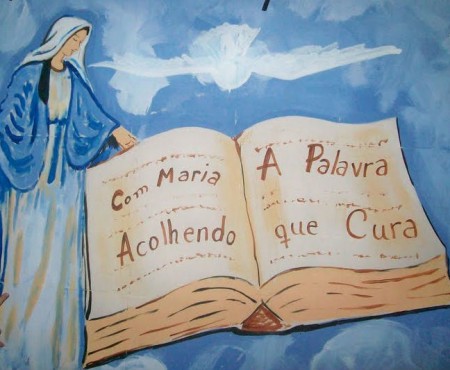 Com Maria
Acolhendo
A Palavra
que Cura